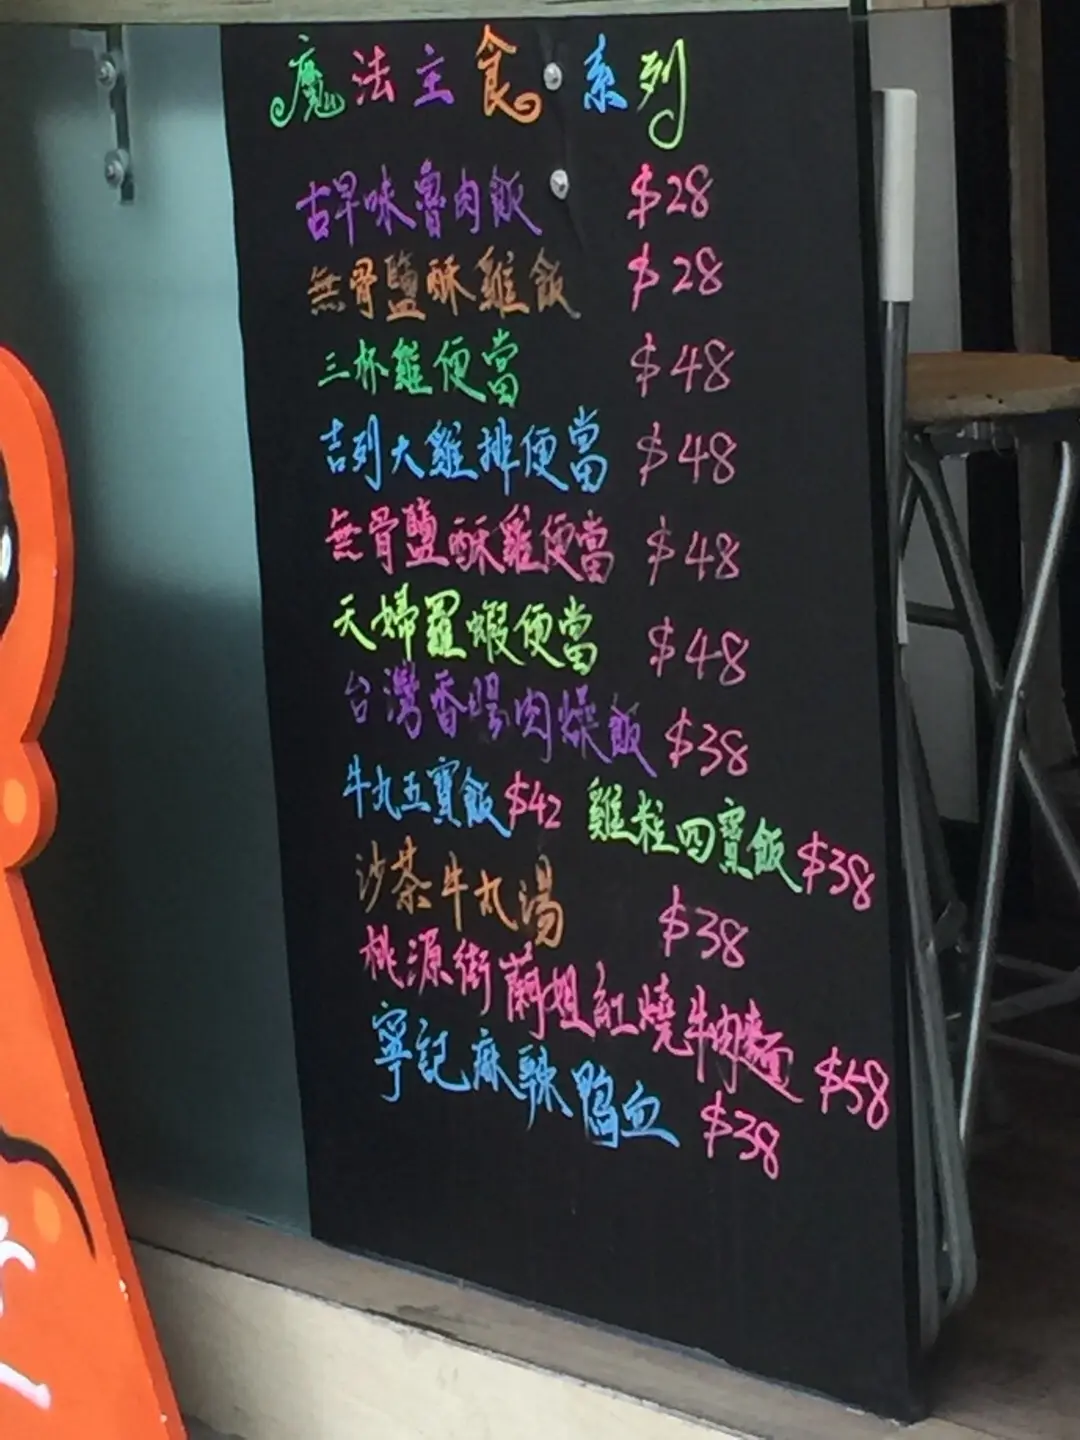 魔法主食系列
古早味魯肉飯 $28
無骨鹽酥雞飯 $28
三杯雞便當 $48
吉列大雞排便當 $48
無骨鹽酥雞便當 $48
天婦羅蝦便當 $48
台灣香腸肉燥飯 $38
牛丸五寶飯 $42 雞粒四寶飯 $38
沙茶牛丸湯 $38
桃源街蘭姐紅燒牛肉麵 $58
寧記麻辣鴨血 $38